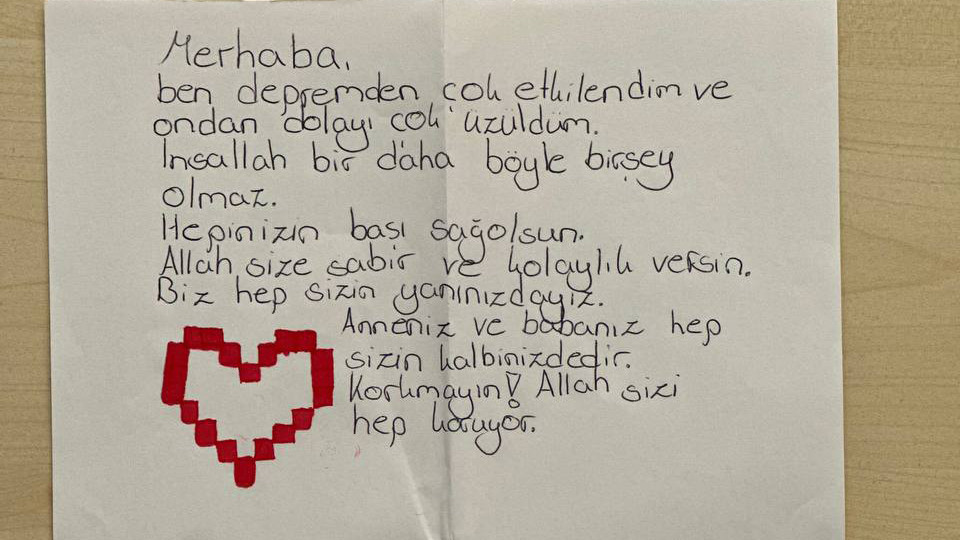 Merhaba,
ben depremden çok etkilendim ve
ondan dolayı çok üzüldüm.
Inşallah bir daha böyle birşey
olmaz.
Hepinizin başı sağolsun.
Allah size sabır ve kolaylık versin.
Biz hep sizin yanınızdayız.
Anneniz ve babanız hep
sizin kalbinizdedir.
Korkmayın! Allah sizi
hep koruyor.